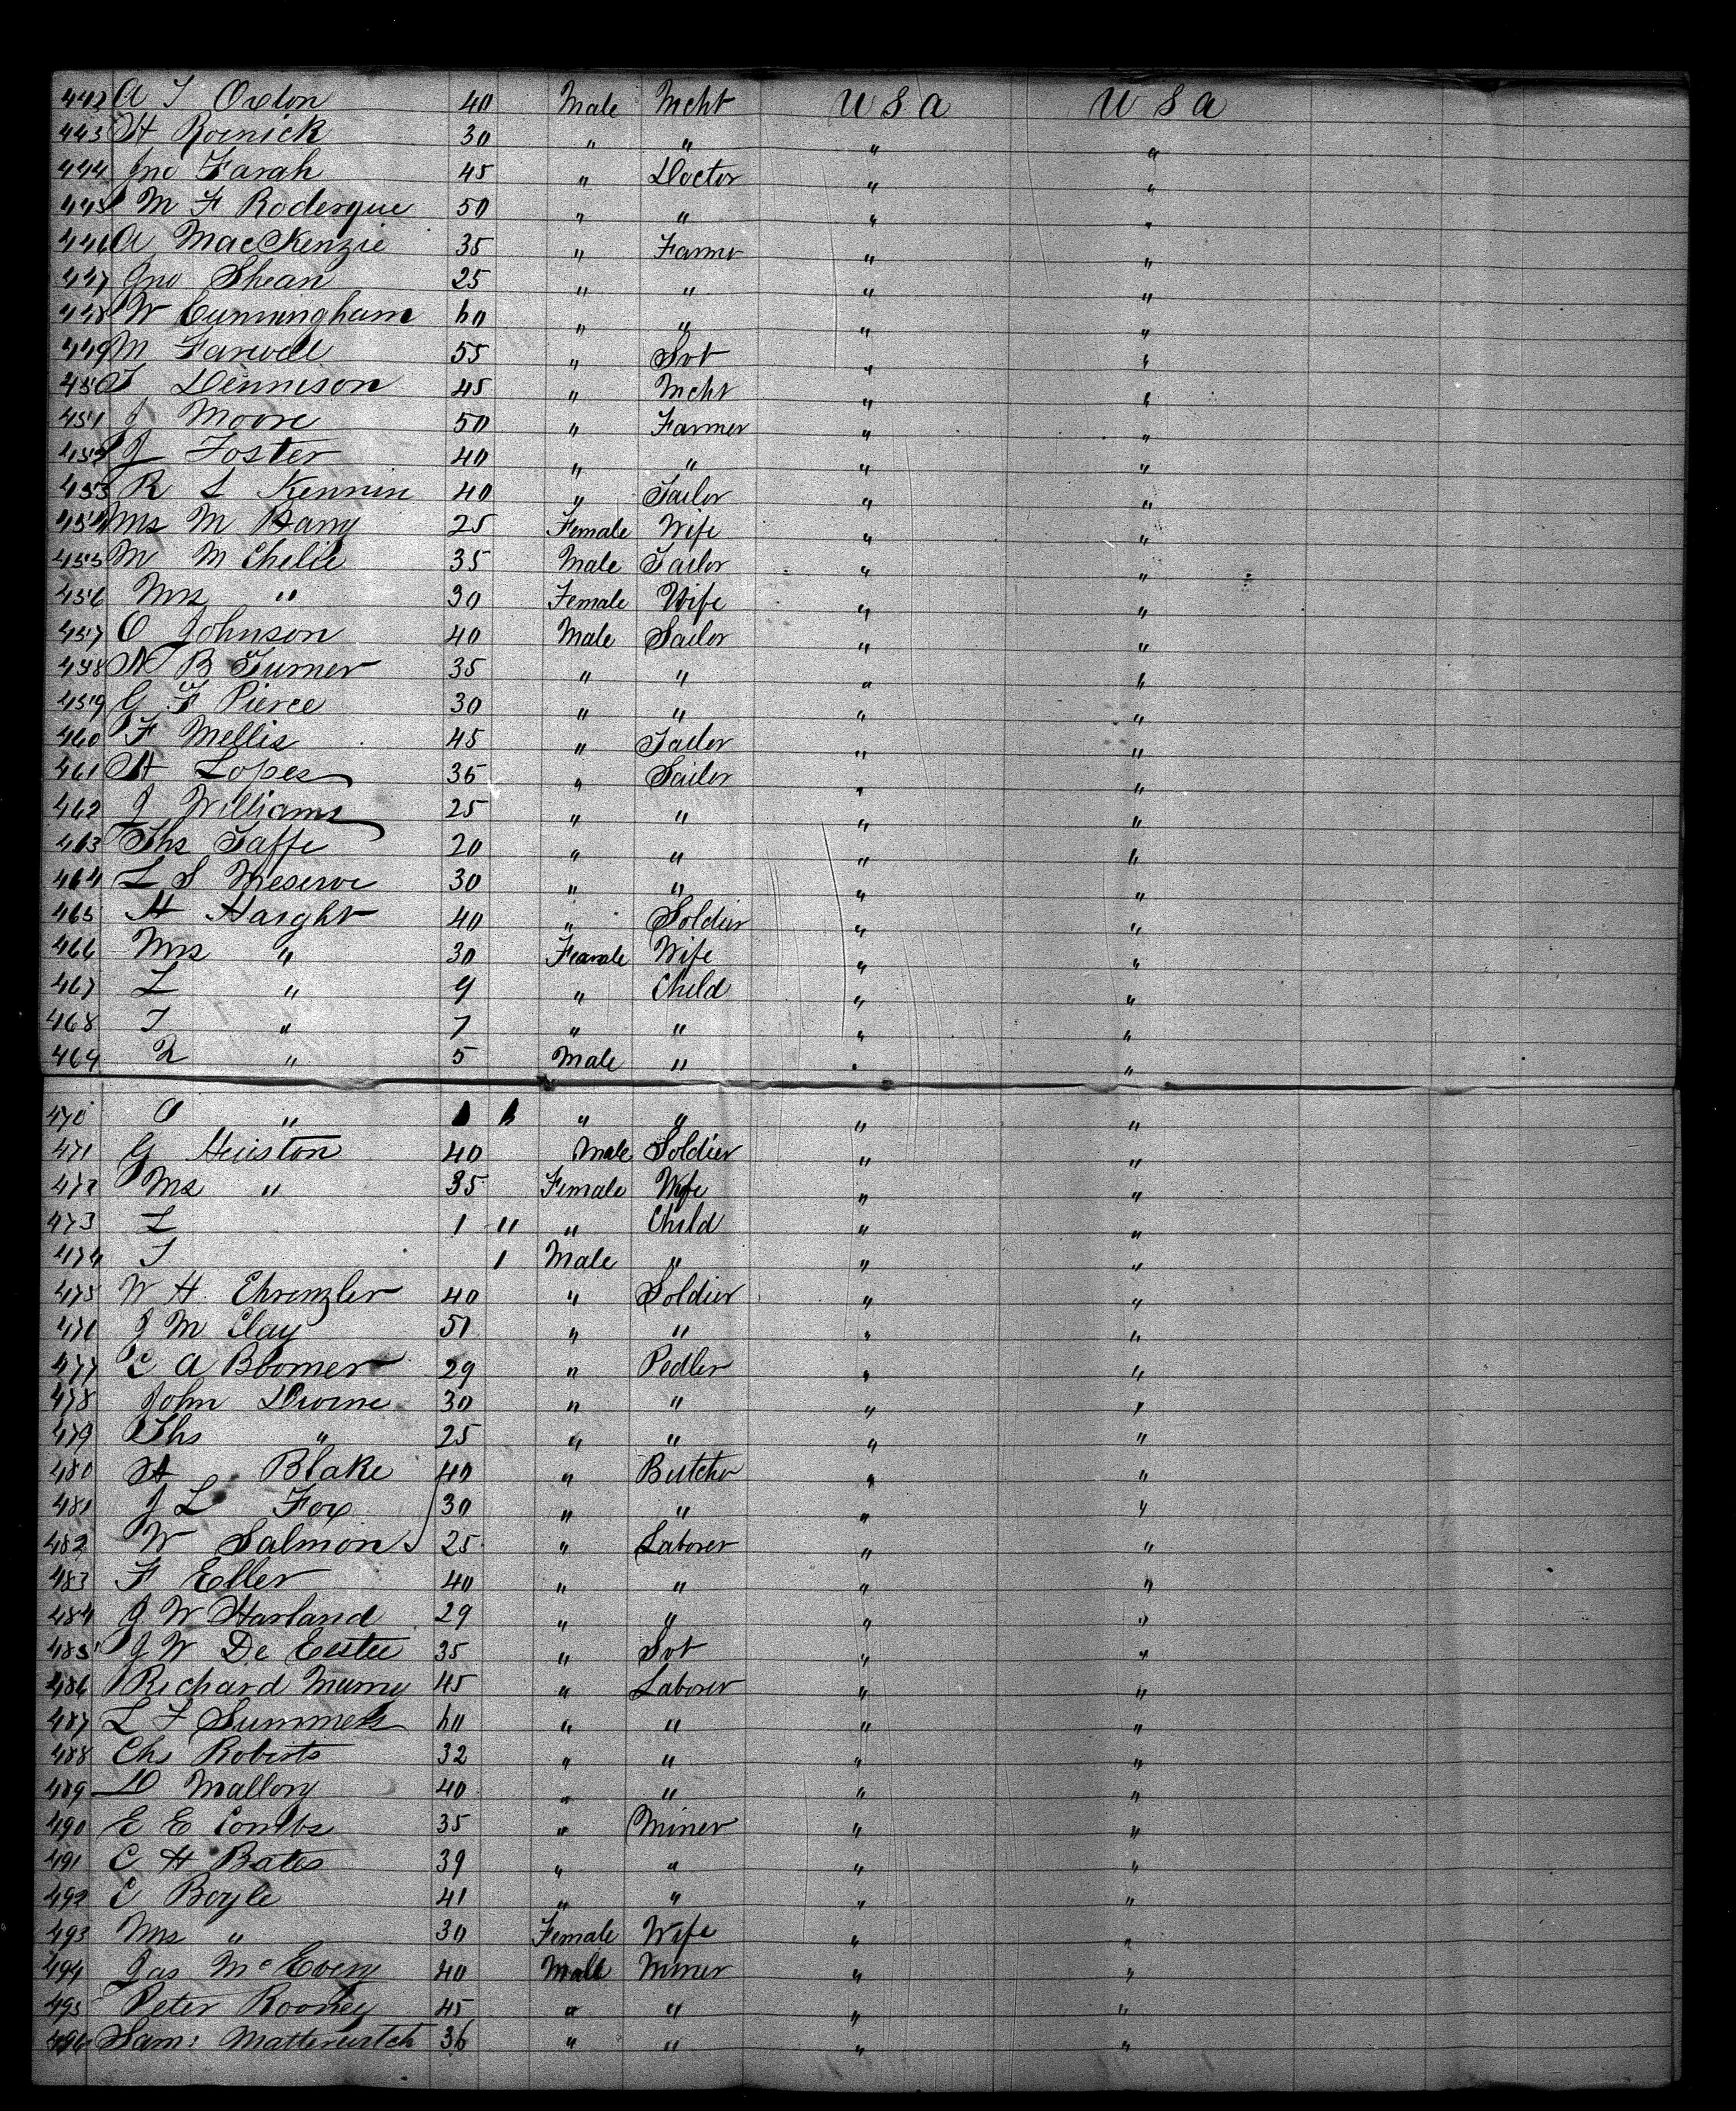 442 A T Oxton 40 Male Mcht U S A U S A
443 H Rornick 30 " " " "
444 Jno Farah 45 " Doctor " "
445 M F Roderque 50 " " " "
446 A MacKenzie 35 " Farmr " "
447 Jno Shean 25 " " " "
448 W Cunningham 60 " " " "
449 M Farwell 55 " Svt " "
450 T Dennison 45 " Mcht " "
451 J Moore 50 " Farmer " "
452 J Foster 40 " " " "
453 R L Kennin 40 " Tailor " "
454 Mrs M Barry 25 Female Wife " "
455 M McChelie 35 Male Tailor " "
456 Mrs " 30 Female Wife " "
457 O Johnson 40 Male Sailor " "
458 N B Turner 35 " " " "
459 G F Pierce 30 " " " "
460 F Mellis 45 " Tailor " "
461 H Lopes 35 " Sailor " "
462 J Williams 25 " " " "
463 Ths Taffe 20 " " " "
464 L S Meserve 30 " " " "
465 H Haight 40 " Soldier " "
466 Mrs " 30 Female Wife " "
467 L " 9 " Child " "
468 T " 7 " " " "
469 " 5 Male " " "
470 O " " " " "
471 G Heiston 40 Male Soldier " "
472 Ms " 35 Female Wife " "
473 L 1 " " Child " "
474 T 1 Male " " "
475 W H Ehrenzler 40 " Soldier " "
476 J M Clay 51 " " " "
477 C A Bloomer 29 " Pedler " "
478 John Divine 30 " " " "
479 Ths " 25 " " " "
480 H Blake 40 " Butchr " "
481 J L Fox 30 " " " "
482 W Salmon 25 " Laborer " "
483 F Eller 40 " " " "
484 J W Harland 29 " " " "
485 J W De Eestee 35 " Svt " "
486 Richard Murry 45 " Laborer " "
487 L F Summers 60 " " " "
488 Chs Roberts 32 " " " "
489 D Mallory 40 " " " "
490 E E Combs 35 " Miner " "
491 C H Bates 39 " " " "
492 C Boyle 41 " " " "
493 Mrs " 30 Female Wife " "
494 Jas McEvery 40 Male Miner " "
495 Peter Rooney 45 " " " "
496 Sam: Matterwitch 36 " " " "